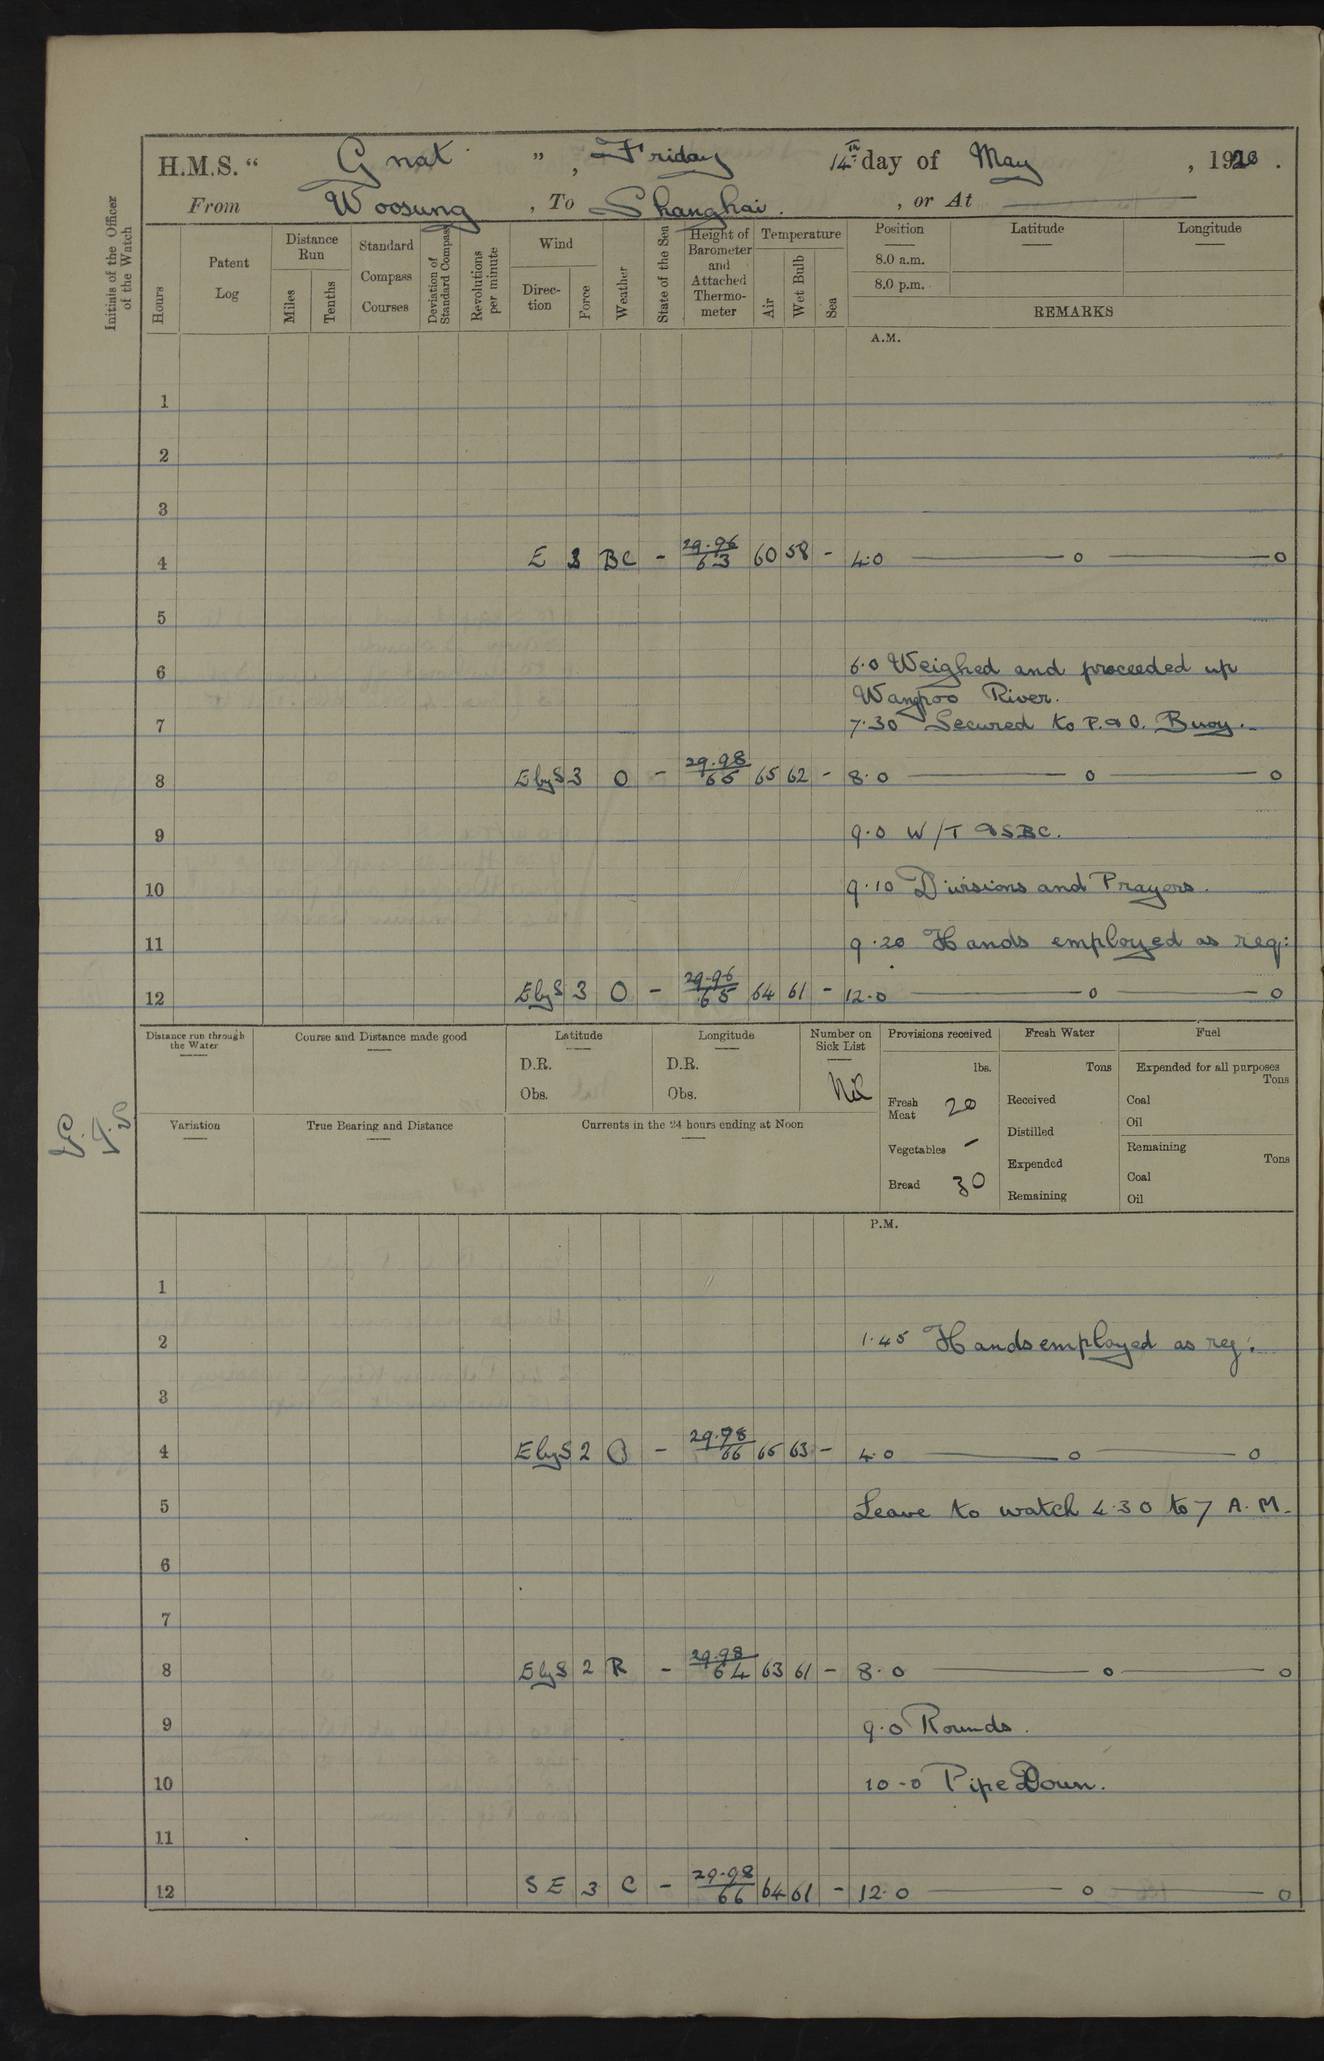 H.M.S. “ Gnat ” , Friday 14th day of May , 1920 .
From Woosung , To Shanghai. , or At
Initials of the Officer of the Watch
Hours
Patent Log
Distance Run
Miles
Tenths
Standard Compass Courses
Deviation of Standard Compass
Revolutions per minute
Wind
Direc-tion
Force
Weather
State of the Sea
Height of Barometer and Attached Thermo-meter
Temperature
Air
Wet Bulb
Sea
Position
Latitude
Longitude
8.0 a.m.
8.0 p.m.
REMARKS
A.M.
1
2
3
4 E 3 BC - 29.96/63 60 58 - 4.0 — o — o
5
6 6.0 Weighed and proceeded up
Wangpoo River.
7 7.30 Secured to P. & O. Buoy.
8 E by S 3 O - 29.98/65 65 62 - 8.0 — o — o
9 9.0 W/T & SBC.
10 9.10 Divisions and Prayers.
11 9.20 Hands employed as req:
12 E by S 3 O - 29.96/65 64 61 - 12.0 — o — o
Distance run through the Water
Course and Distance made good
Latitude
D.R.
Obs.
Longitude
D.R.
Obs.
Number on Sick List
Nil
Provisions received
lbs.
Fresh Meat 20
Vegetables -
Bread 30
Fresh Water
Tons
Received
Distilled
Expended
Remaining
Fuel
Expended for all purposes
Tons
Coal
Oil
Remaining
Tons
Coal
Oil
Variation
True Bearing and Distance
Currents in the 24 hours ending at Noon
P.M.
1
2 1.45 Hands employed as req:
3
4 E by S 2 O - 29.98/66 65 63 - 4.0 — o — o
5 Leave to watch 4.30 to 7 A.M.
6
7
8 E by S 2 R - 29.98/64 63 61 - 8.0 — o — o
9 9.0 Rounds.
10 10-0 Pipe Down.
11
12 SE 3 C - 29.98/66 64 61 - 12.0 — o — o